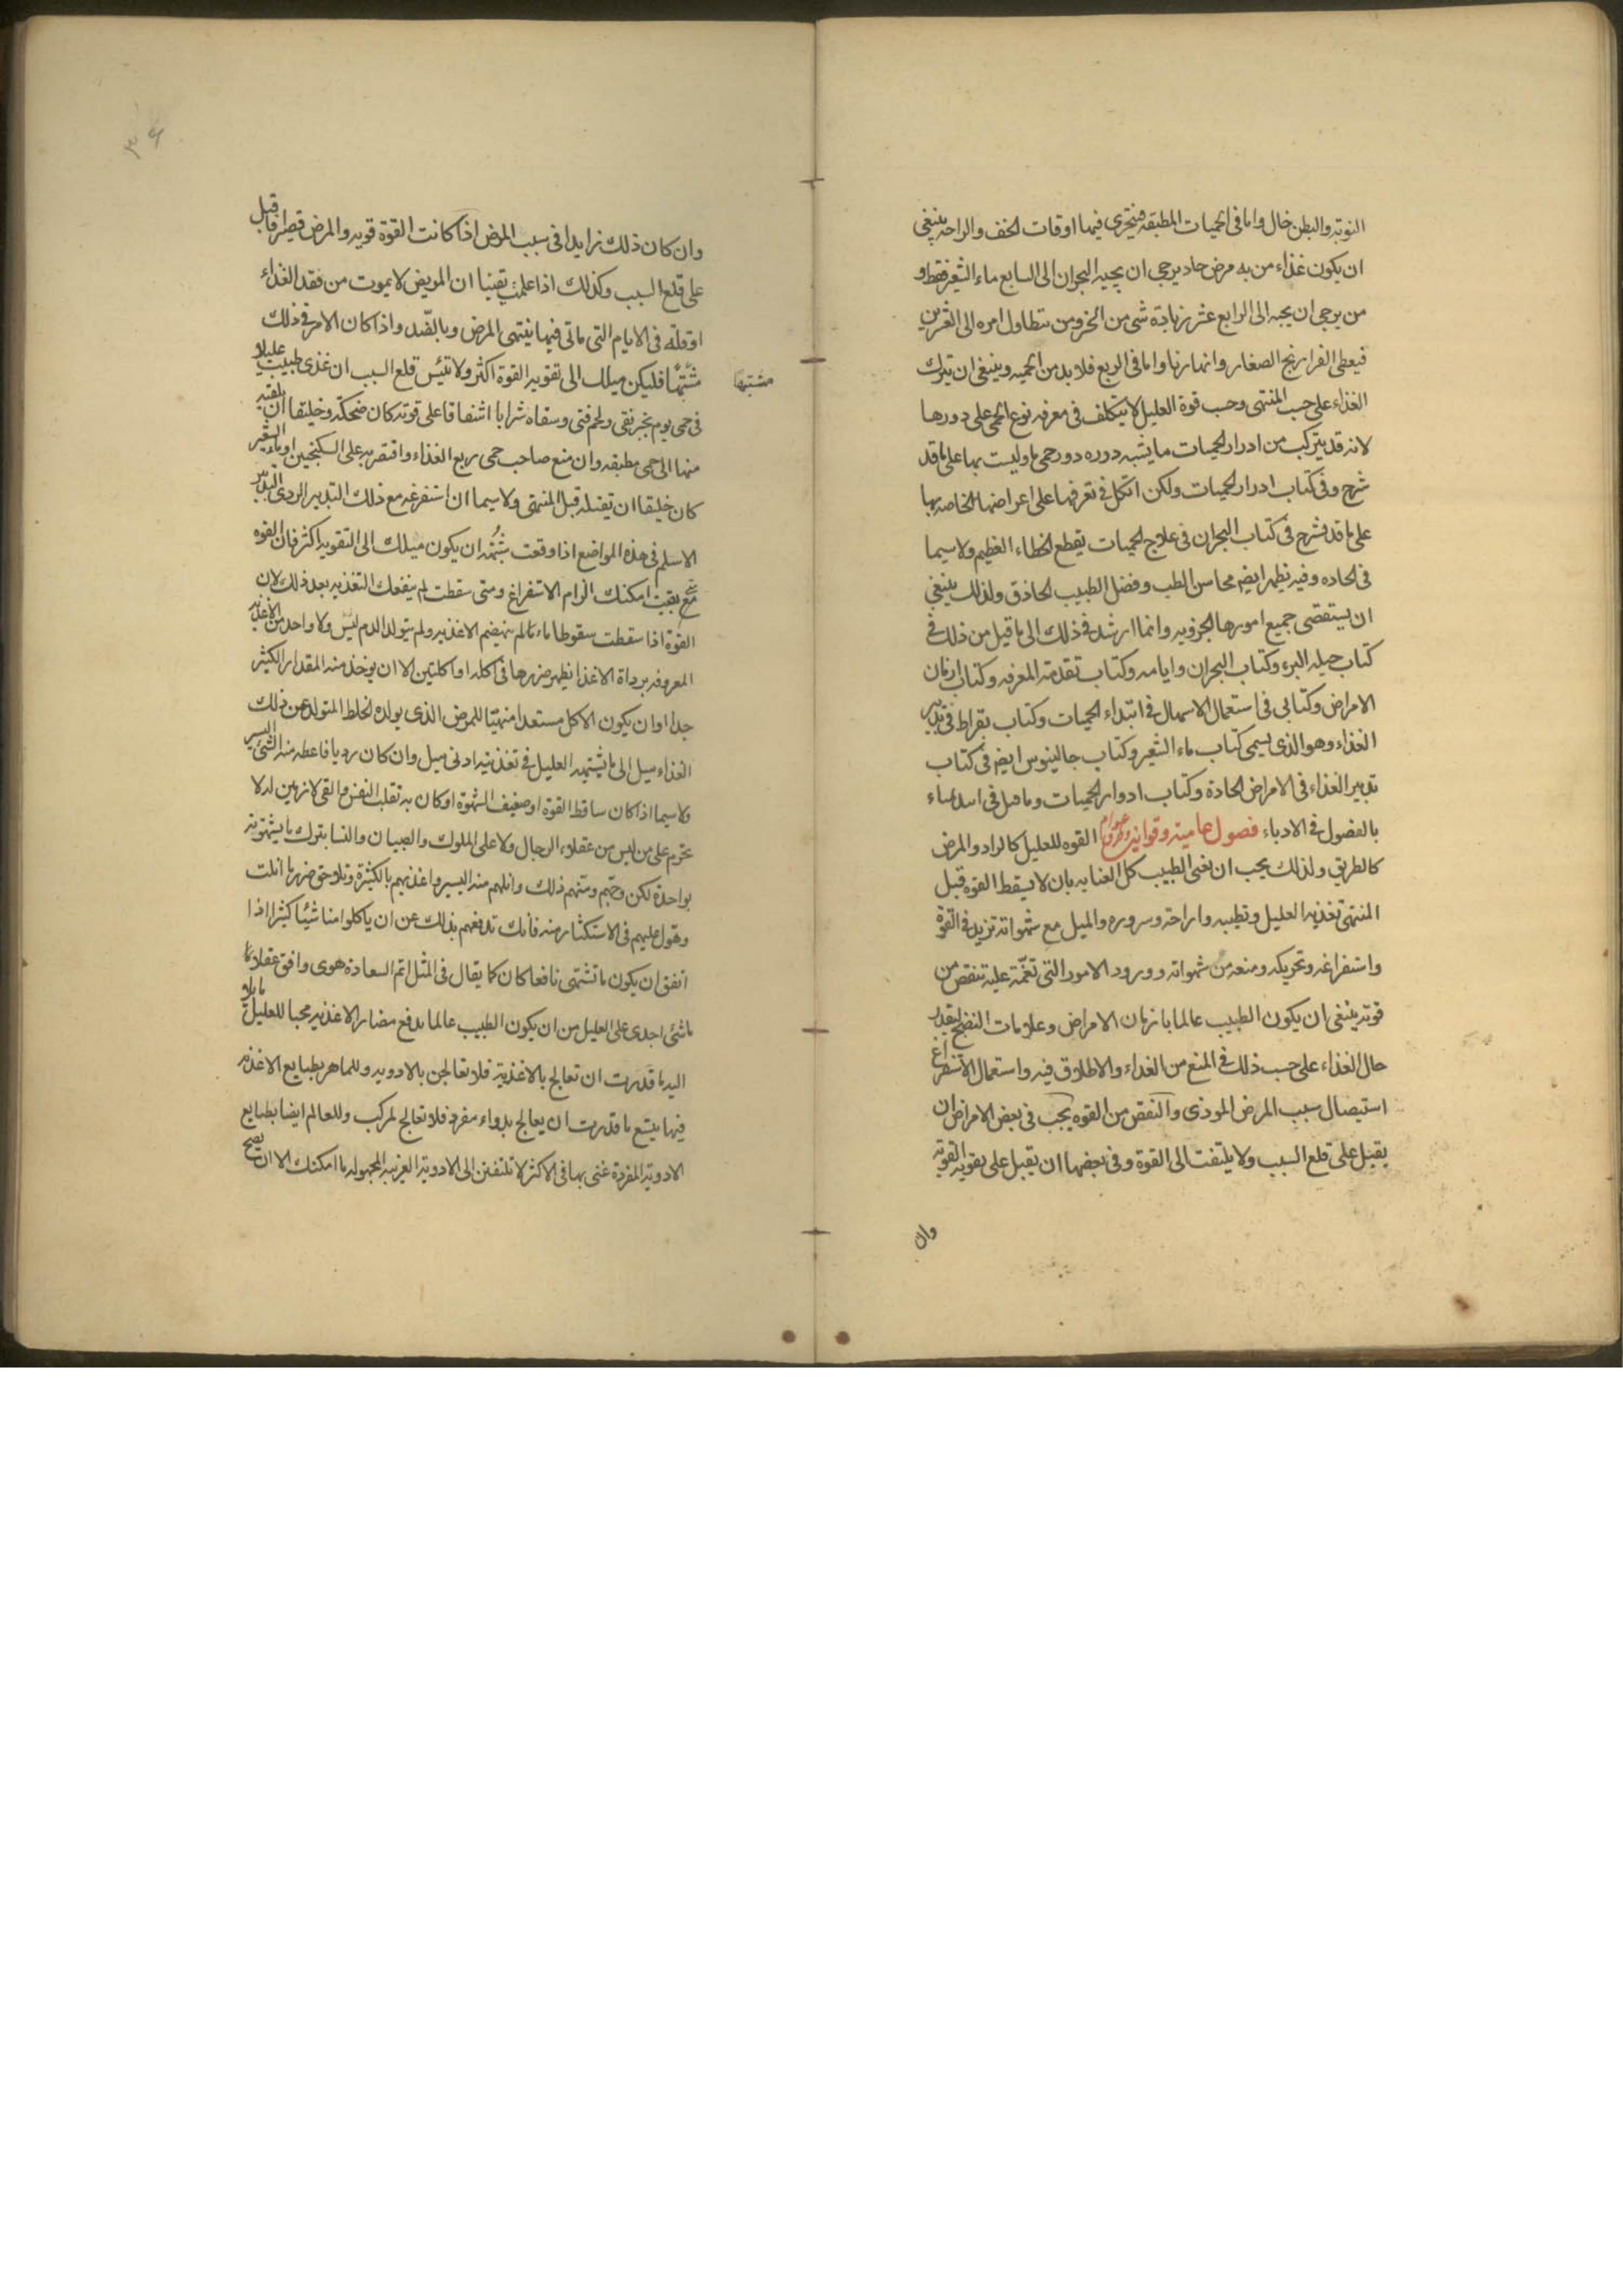 النوبة والبطن خال واما فى الحميات المطبقة فيتحرى فيها اوقات الخف والراحة ينبغى
ان يكون غذاء من به مرض حاد يرجى ان يجيه البحران الى السابع ماء الشعير فقط و
من يرجى ان يجيه الى الرابع عشر زيادة شى من الخبز ومن يتطاول امره الى العشرين
فيعطى الفراريج الصغار وانهارها واما فى الربع فلا بد من الحميه وينبغى ان يترك
الغذاء على حسب المنتهى وحسب قوة العليل لا يتكلف فى معرفه نوع الحمى على دورها
لانه قد يتركب من ادرار الحميات ما يشبه دوره دور حمى ما وليست بها على ما قد
شرح وفى كتاب ادرار الحميات ولكن اتكل فى تعرفها على اعراضها الخاصه بها
على ما قد شرح فى كتاب البحران فى علاج الحميات يقطع الخطاء العظيم ولا سيما
فى الحاده وفيه يظهر ايضم محاسن الطب وفضل الطبيب الحاذق ولذلك ينبغى
ان يستقصى جميع امورها الجزويه وانما ارشد فى ذلك الى ما قيل من ذلك فى
كتاب حيله البرء وكتاب البحران وايامه وكتاب تقدمة المعرفه وكتاب ازمان
الامراض وكتابى فى استعمال الاسهال فى ابتداء الحميات وكتاب بقراط فى تدبير
الغذاء وهو الذى يسمى كتاب ماء الشعير وكتاب جالينوس ايضم فى كتاب
تدبير الغذاء فى الامراض الحادة وكتاب ادوار الحميات وما قيل فى
بالفصول فى الادباء فصول هامية وقوانين القوه للعليل كالزاد والمرض
كالطريق ولذلك يجب ان يعنى الطبيب كل العنايه بان لا يسقط القوه قبل
المنتهى تغذيه العليل وتطييبه واراحته وسروره والميل مع شهواته تزيد فى القوة
واستفراغه وتحريكه ومنعه من شهواته وورود الامور التى تغمّه عليه تنقص من
قوته ينبغى ان يكون الطبيب عالما بازمان الامراض وعلامات النضج ليقدر
حال الغذاء على حسب ذلك فى المنع من الغذاء والاطلاق فيه واستعمال الاستفراغ
استيصال سبب المرض الموذى والنقص من القوه يجب فى بعض الامراض ان
يقبل على قلع السبب ولا يلتفت الى القوة وفى بعضها ان يقبل على تقويه القوة
وان
٣٤
وان كان ذلك زايدا فى سبب المرض اذا كانت القوة قويه والمرض قصيرا فاقبل
على قلع السبب وكذلك اذا علمت يقينا ان المريض لا يموت من فقد الغذاء
او قلته فى الايام التى ياتى فيها ينتهى المرض وبالضّد واذا كان الامر فى ذلك
مشتبها فليكن ميلك الى تقويه القوة اكثر ولا تيئس قلع السبب ان غذى طبيب عليلا
مشتبها
فى حمى يوم بخبز نقى ولحم فتى وسقاه شرابا اشفاقا على قوته كان ضحكة وخليقا ان ينقله
منها الى حمى مطبقه وان منع صاحب حمى ربع الغذاء واقتصر به على السكنجبين او ماء الشعير
كان خليقا ان يقتله قبل المنتهى ولا سيما ان استفرغه مع ذلك التدبير الردى التدبير
الاسلم فى هذه المواضع اذا وقعت شبهه ان يكون ميلك الى التقويه اكثر فان القوه
متى بقيت امكنك الزام الاستفراغ ومتى سقطت لم ينفعك التغذيه بعد ذلك لان
القوة اذا سقطت سقوطا ما تاما لم ينهضم الاغذيه ولم يتولد الدم ليس ولا واحد من الاغذيه
المعروفه برداة الاغذا يظهر ضررها فى اكله او اكلتين الا ان يوخذ منه المقدار الكثير
جدا او ان يكون الاكل مستعدا متهيئا للمرض الذى يولده الخلط المتولد عن ذلك
الغذاء ميل الى ما يشتهيه العليل فى تغذيته ادنى ميل وان كان رديا فاعطه منه الشئ اليسير
ولا سيما اذا كان ساقط القوة او ضعيف الشهوة او كان به تقلب النفس والقى لانه من له لا
تحرّم على من ليس من عقلاء الرجال ولا على الملوك والصبيان والنسا بترك ما يشتهونه
بواحدة لكن وجبهم ومنهم ذلك وانلهم منه اليسير واغذيهم بالكثرة وتلاحق ضررها انلت
وهول عليهم فى الاستكثار منه فانك تدفعهم بذلك عن ان ياكلوا منا شيئا كثيرا اذا
اتفق ان يكون ما تشتهى نافعا كان كما يقال فى المثل اتم السعادة هوى وافق عقلا ما
ما شئ اجدى على العليل من ان يكون الطبيب عالما بدفع مضار الاغذيه محبا للعليل مايلا
اليه ما قدرت ان تعالج بالاغذية فلا تعالجن بالادويه وللماهر بطبايع الاغذيه
فيها يتسع ما قدرت ان يعالج بدواء مفرد فلا تعالج لمركب وللعالم ايضا بطبايع
الادوية المفردة غنى بها فى الاكثر لا تلتفتن الى الادوية الغريبه المجهوله ما امكنك الا ان يصح